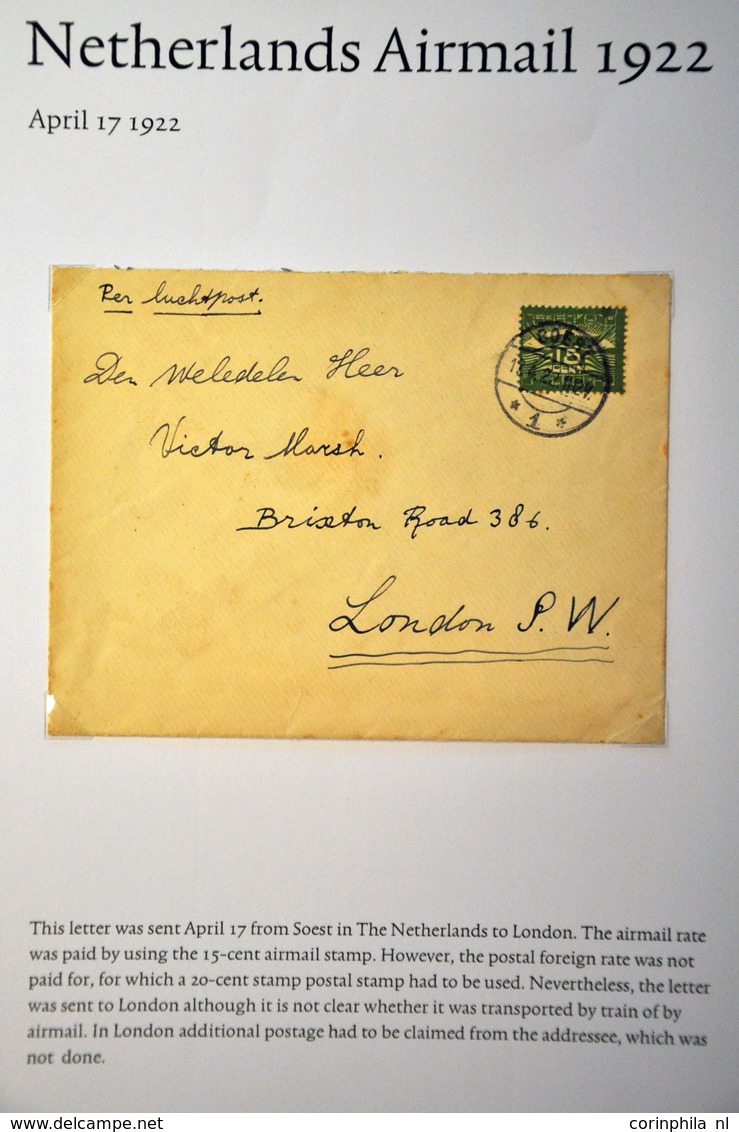 Netherlands Airmail 1922
April 17 1922
Per luchtpost.
Den Weledelen Heer
Victor Marsh.
Brixton Road 386.
London S.W.
SOEST
15
CENT
1
This letter was sent April 17 from Soest in The Netherlands to London. The airmail rate
was paid by using the 15-cent airmail stamp. However, the postal foreign rate was not
paid for, for which a 20-cent stamp postal stamp had to be used. Nevertheless, the letter
was sent to London although it is not clear whether it was transported by train of by
airmail. In London additional postage had to be claimed from the addressee, which was
not done.
www.delcampe.net
corinphila nl